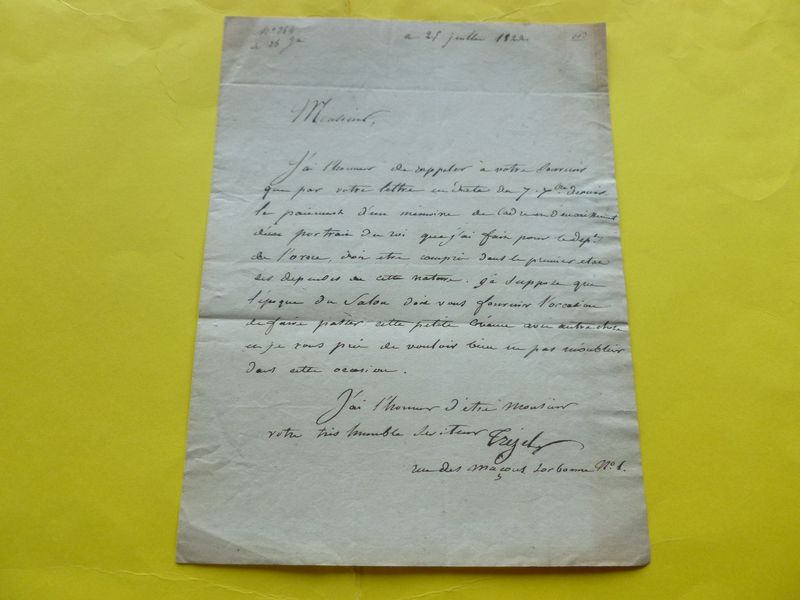 N° 264
a 25 juillet 1822.
Monsieur,
J'ai l'honneur de rappeler à votre Souvenir
que par votre lettre en date du 7. 7bre dernier
le paiement d'un mémoire de Cadre
d'un portrait du roi que j'ai fait pour le dépt.
de l'orne, doit etre compris dans le premier etat
des depenses de cette nature. Je Suppose que
l'époque du Salon doit vous fournir l'occasion
de faire passer cette petite Créance avec autre chose
et je vous prie de vouloir bien ne pas m'oublier
dans cette occasion.
J'ai l'honneur d'être Monsieur
votre très humble Serviteur
rue des maçons Sorbonne N° 1.